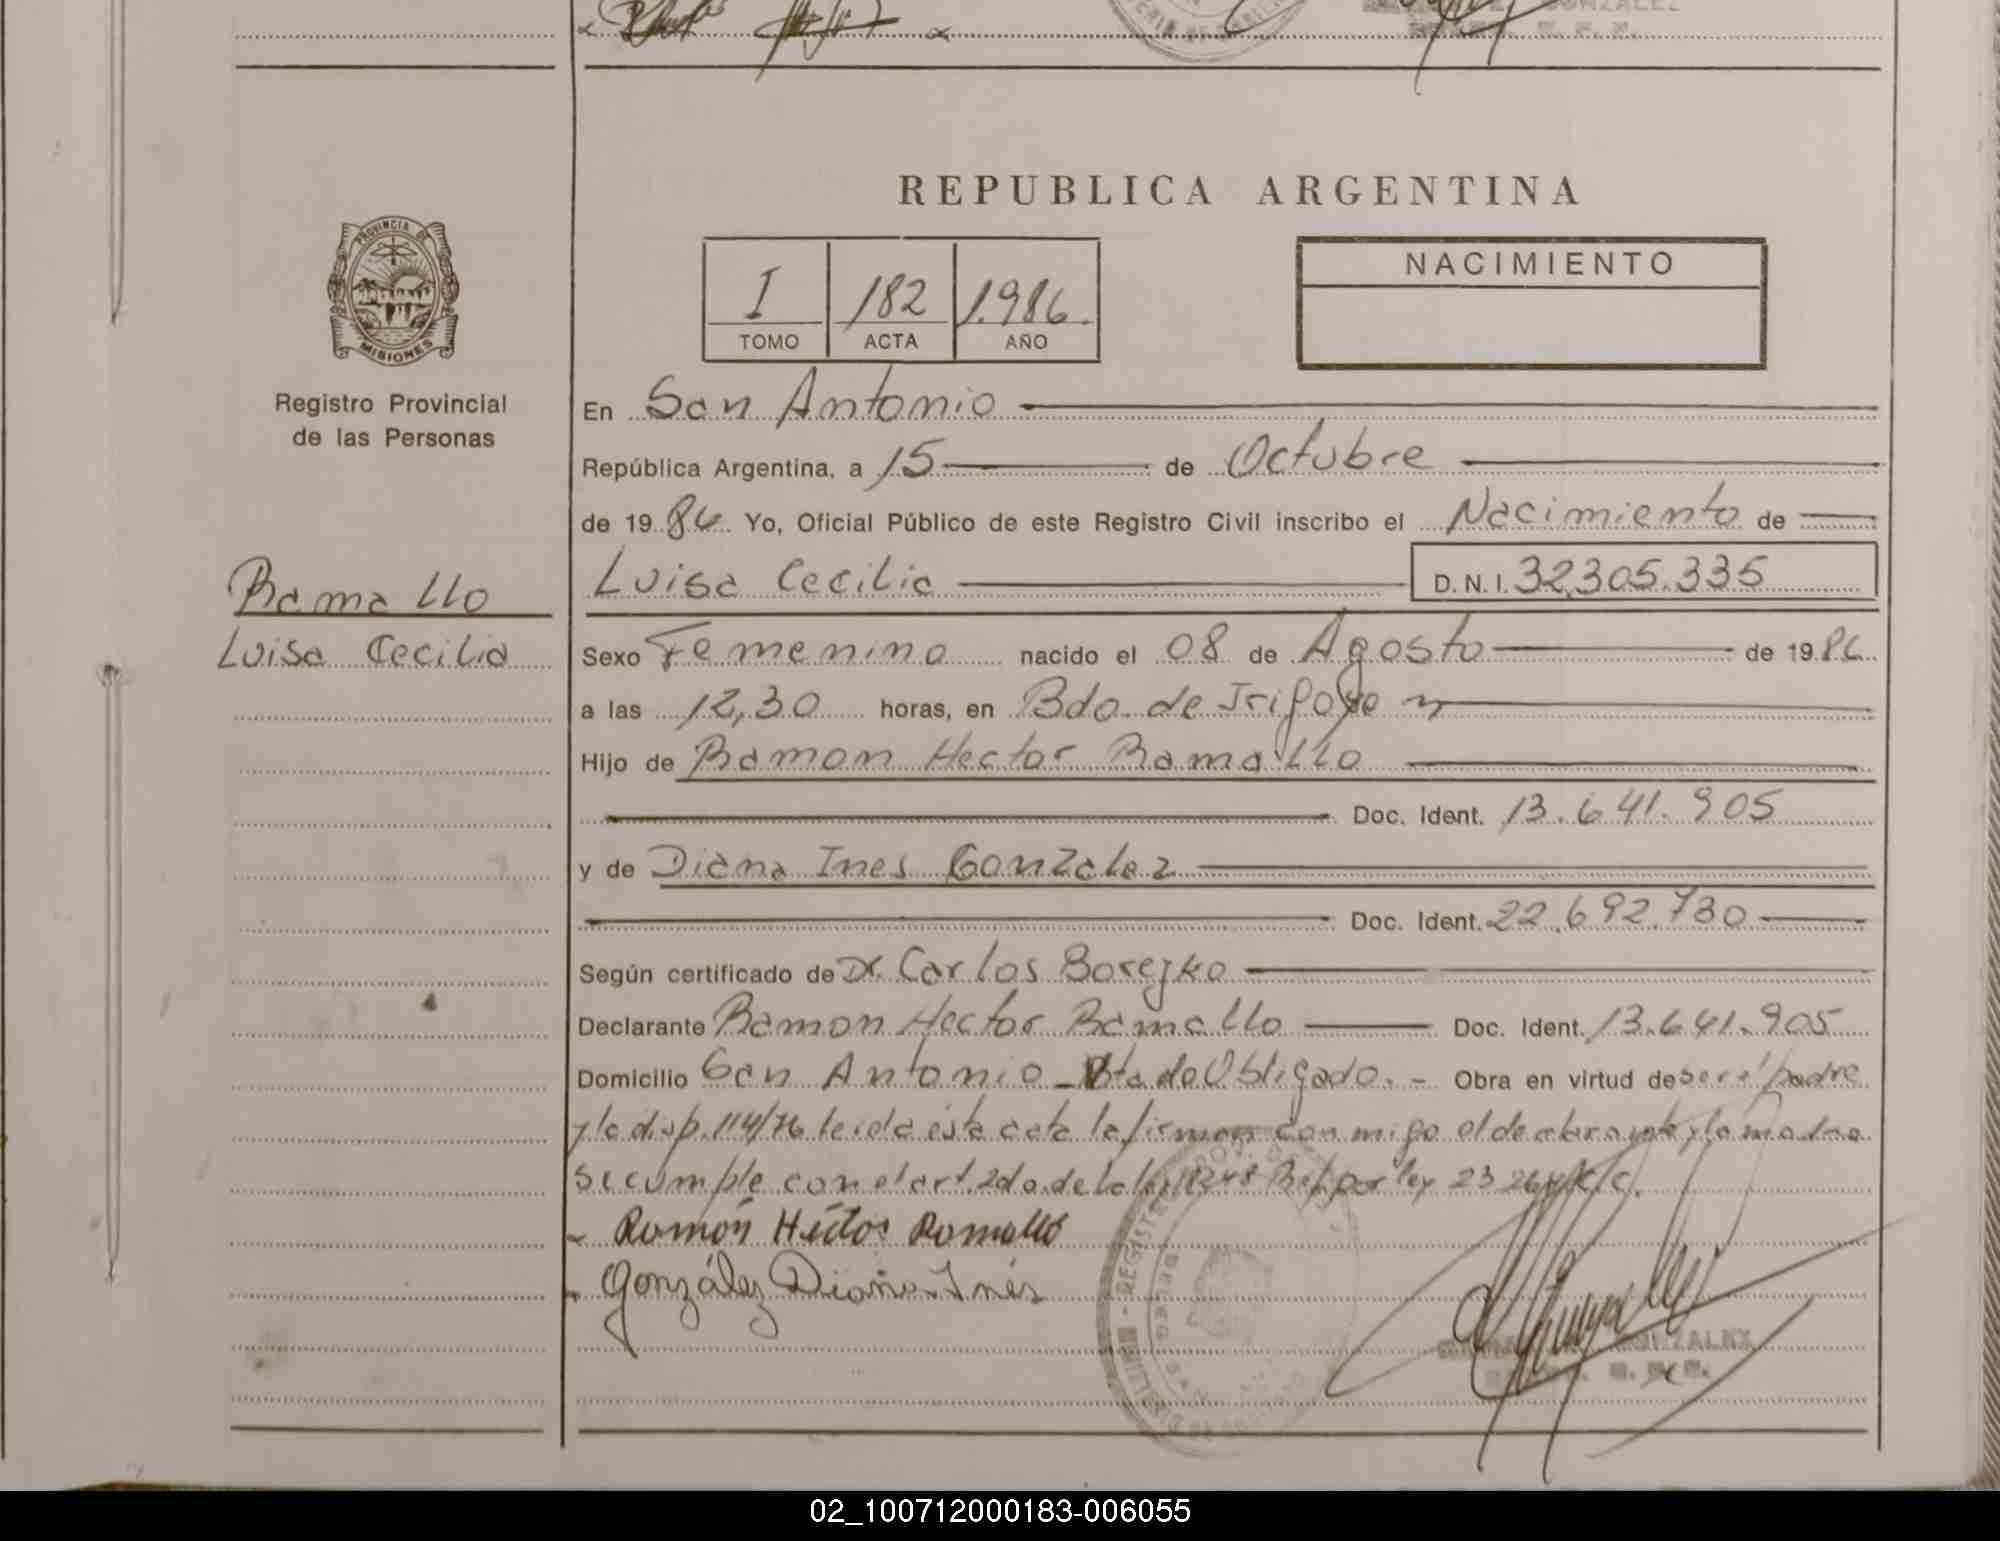 REPUBLICA ARGENTINA
PROVINCIA DE
MISIONES
I 182 1.986
TOMO ACTA AÑO
NACIMIENTO
Registro Provincial
de las Personas
Ramallo
Luisa Cecilia
En San Antonio
República Argentina, a 15 de Octubre
de 19 86 Yo, Oficial Público de este Registro Civil inscribo el Nacimiento de
Luisa Cecilia D. N. I. 32.305.335
Sexo Femenino nacido el 08 de Agosto de 19 86
a las 12,30 horas, en Bdo. de Irigoyen
Hijo de Ramon Hector Ramallo
Doc. Ident. 13.641.905
y de Diana Ines Gonzalez
Doc. Ident. 22.692.730
Según certificado de Dr. Carlos Borejko
Declarante Ramon Hector Ramallo Doc. Ident. 13.641.905
Domicilio San Antonio - Pto de Obligado. - Obra en virtud de ser el padre
y la disp. 114/76 leida esta acta la firman conmigo el declarante y la madre
se cumple con el art. 2do. de la ley 18248 por ley 23264
Ramón Héctor Ramallo
González Diana Inés
GONZALEZ
02_100712000183-006055